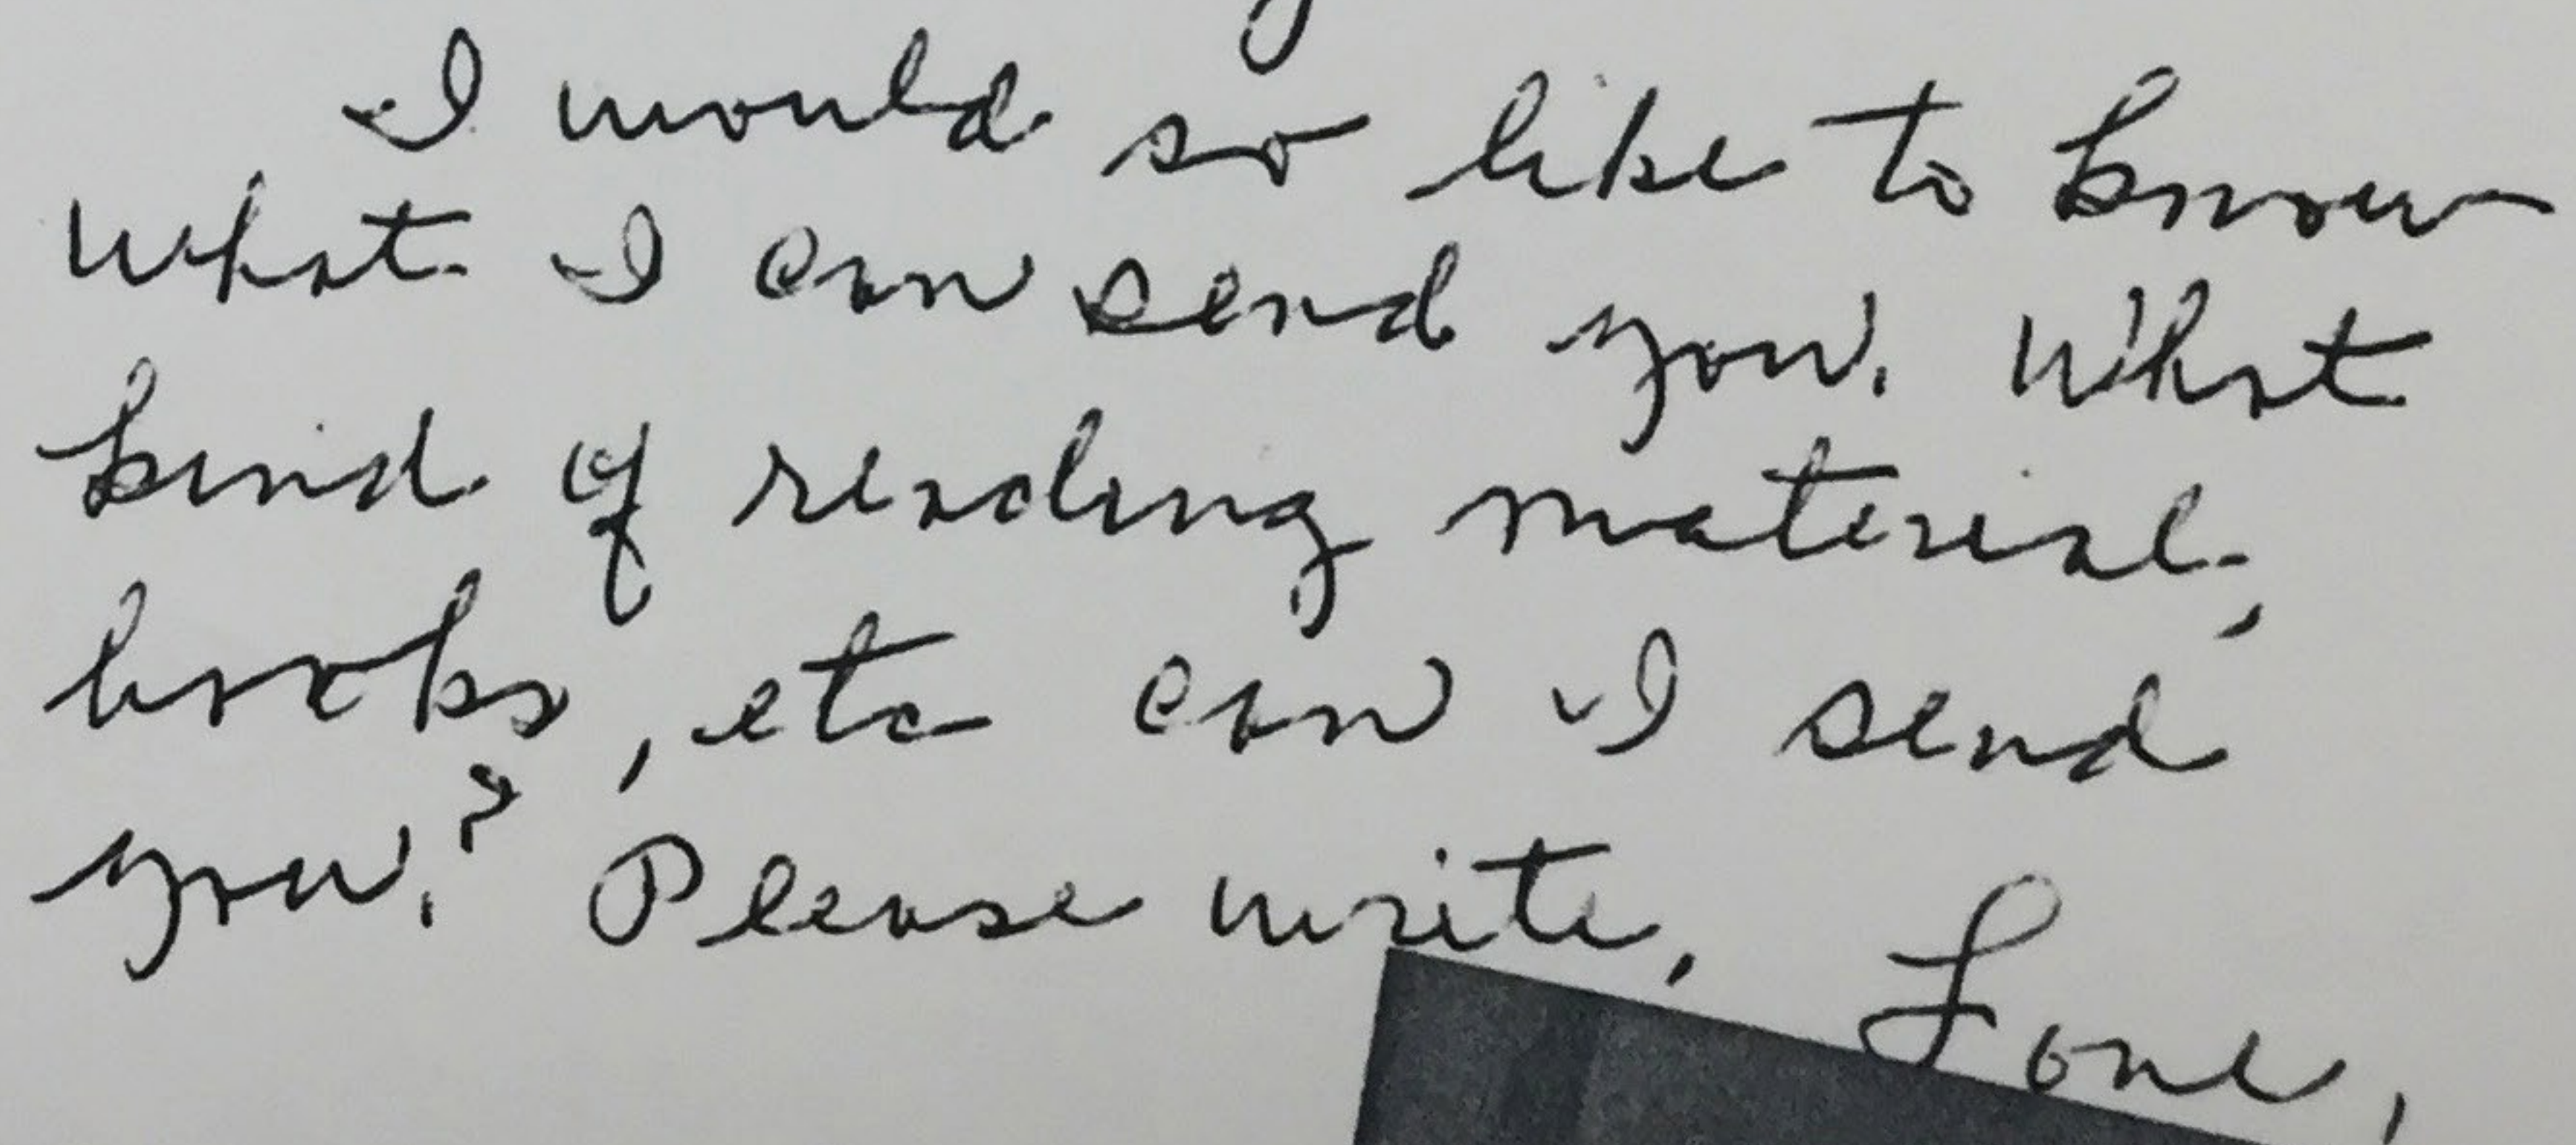 I would so like to know
what I can send you. What
kind of reading material,
books, etc can I send
you? Please write,
Love,